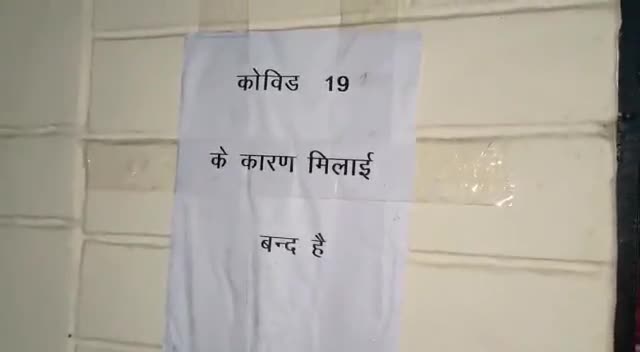 कोविड 19
के कारण मिलाई
बन्द है